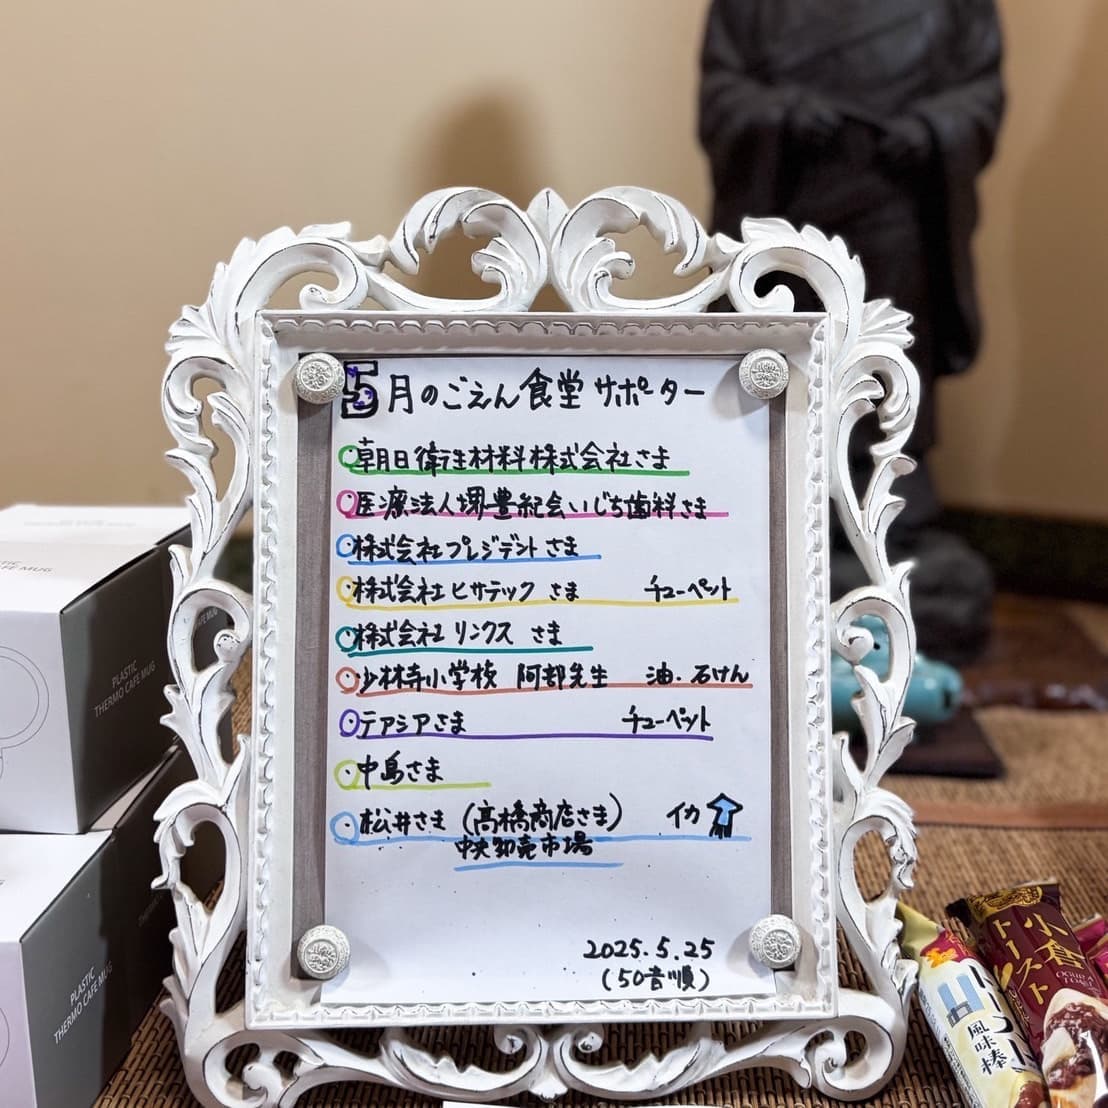 5月のごえん食堂サポーター
朝日衛生材料株式会社さま
医療法人堺豊紀会いじち歯科さま
株式会社プレジデントさま
株式会社ヒサテックさま チューペット
株式会社リンクスさま
少林寺小学校 阿部先生 油・石けん
テアシアさま チューペット
中島さま
松井さま(高橋商店さま) イカ
中央卸売市場
2025.5.25
(50音順)
PLASTIC
THERMO CAFE MUG
PLASTIC
THERMO CAFE MUG
小倉
トースト
OGURA
風味棒